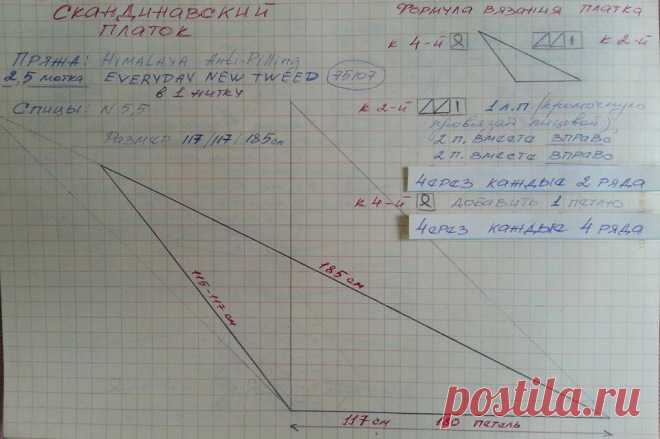 Скандинавский
платок
Пряжа: Himalaya Anti-Pilling
2,5 мотка EVERYDAY NEW TWEED 75107
в 1 нитку
Спицы: N 5,5
Размер 117/117/185см
Формула вязания платка
к 4-й
к 2-й
к 2-й 1 л.п (кромочную
провязать лицевой)
2 п. вместе вправо
2 п. вместе вправо
4ерез каждые 2 ряда
к 4-й добавить 1 петлю
4ерез каждые 4 ряда
185 см
115-117 см
117 см 160 петель
postila.ru